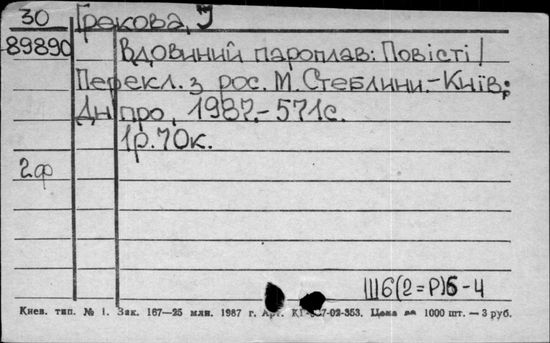 30 Грекова, І
89890 Вдовиний пароплав: Повісті /
Перекл. з рос. М. Стеблини.-Київ:
Дніпро, 1987.-571с.
1р.70к.
2ф
Ш6(2=Р)6-4
Киев. тип. № 1. Зак. 167—25 млн. 1987 г. Арт. 7-02-353. Цена за 1000 шт. — 3 руб.